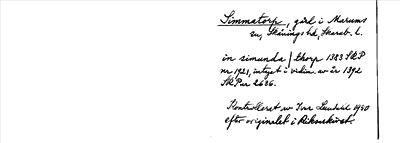 Simmatorp, gård i Marums
sn, Skånings hd, Skarab. l.
in simunda / thorp 1383 SRP
nr 1921, intaget i vidim. av år 1392
SRP nr 2636.
Kontrollerat av Ivar Lundahl 1950
efter originalet i Riksarkivet.